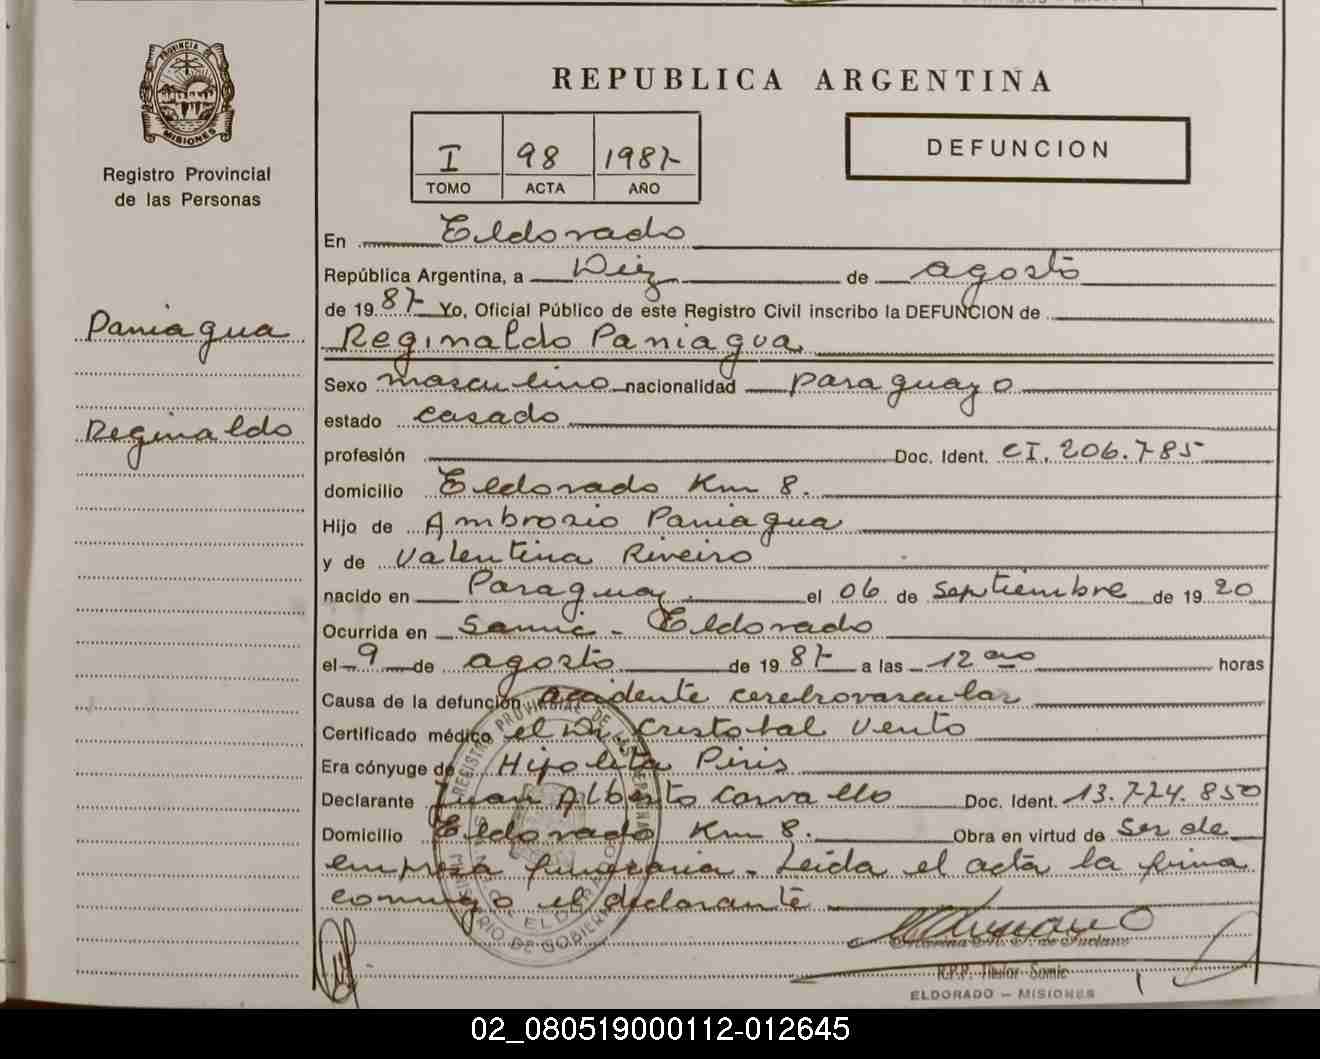 PROVINCIA DE
MISIONES
Registro Provincial
de las Personas
Paniagua
Reginaldo
REPUBLICA ARGENTINA
I 98 1987-
TOMO ACTA AÑO
DEFUNCION
En Eldorado
República Argentina, a Diez de agosto
de 1987- Yo, Oficial Público de este Registro Civil inscribo la DEFUNCION de
Reginaldo Paniagua
Sexo masculino nacionalidad paraguayo
estado casado
profesión Doc. Ident. CI. 206.785
domicilio Eldorado Km 8.
Hijo de Ambrosio Paniagua
y de Valentina Riveiro
nacido en Paraguay. el 06 de septiembre de 1920
Ocurrida en Samic - Eldorado
el 9 de agosto de 1987- a las 12 horas
Causa de la defunción accidente cerebrovascular
Certificado médico el Dr. Cristobal Vento
Era cónyuge de Hipolita Piris
Declarante Juan Alberto Carvallo Doc. Ident. 13.724.850
Domicilio Eldorado Km 8. Obra en virtud de ser de
empresa funeraria. Leida el acta la firma
conmigo el declarante
REGISTRO PROVINCIAL DE LAS PERSONAS
MINISTERIO DE GOBIERNO
ELDORADO
R.P.P. Titular Samic
ELDORADO - MISIONES
02_080519000112-012645